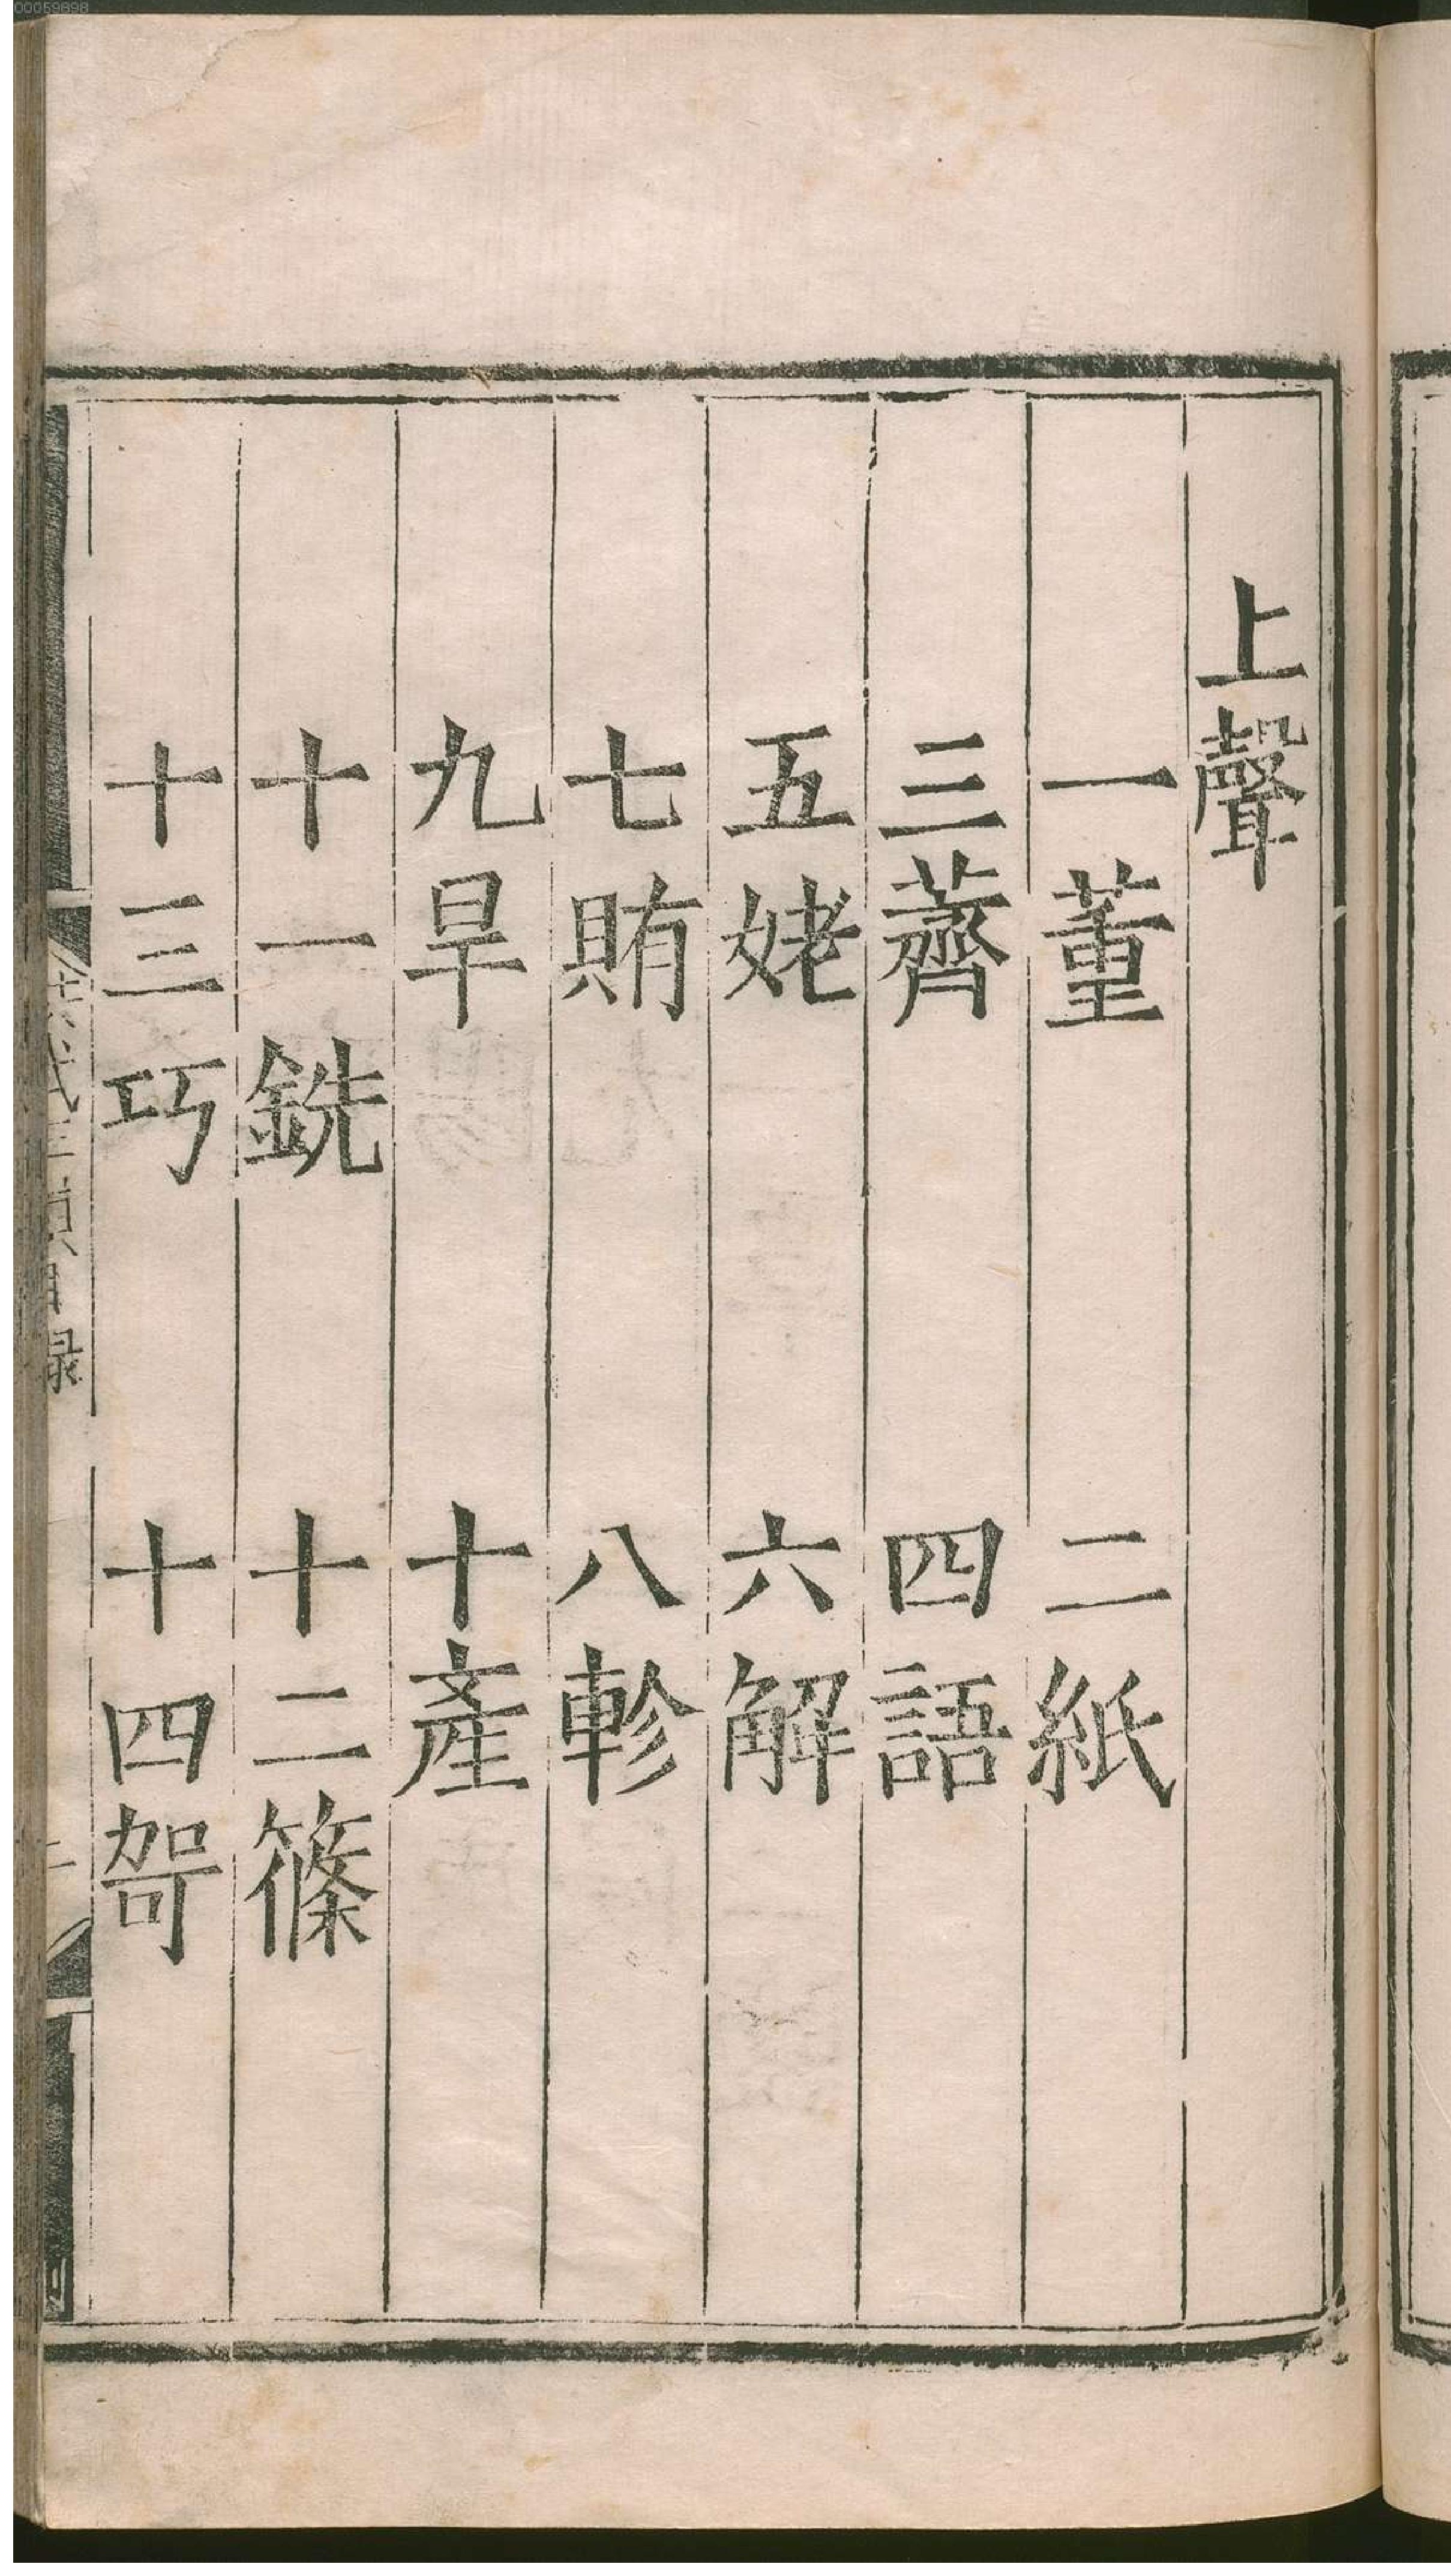 00059898
上聲
一董 二紙
三薺 四語
五姥 六解
七賄 八軫
九旱 十產
十一銑 十二篠
十三巧 十四哿
目錄